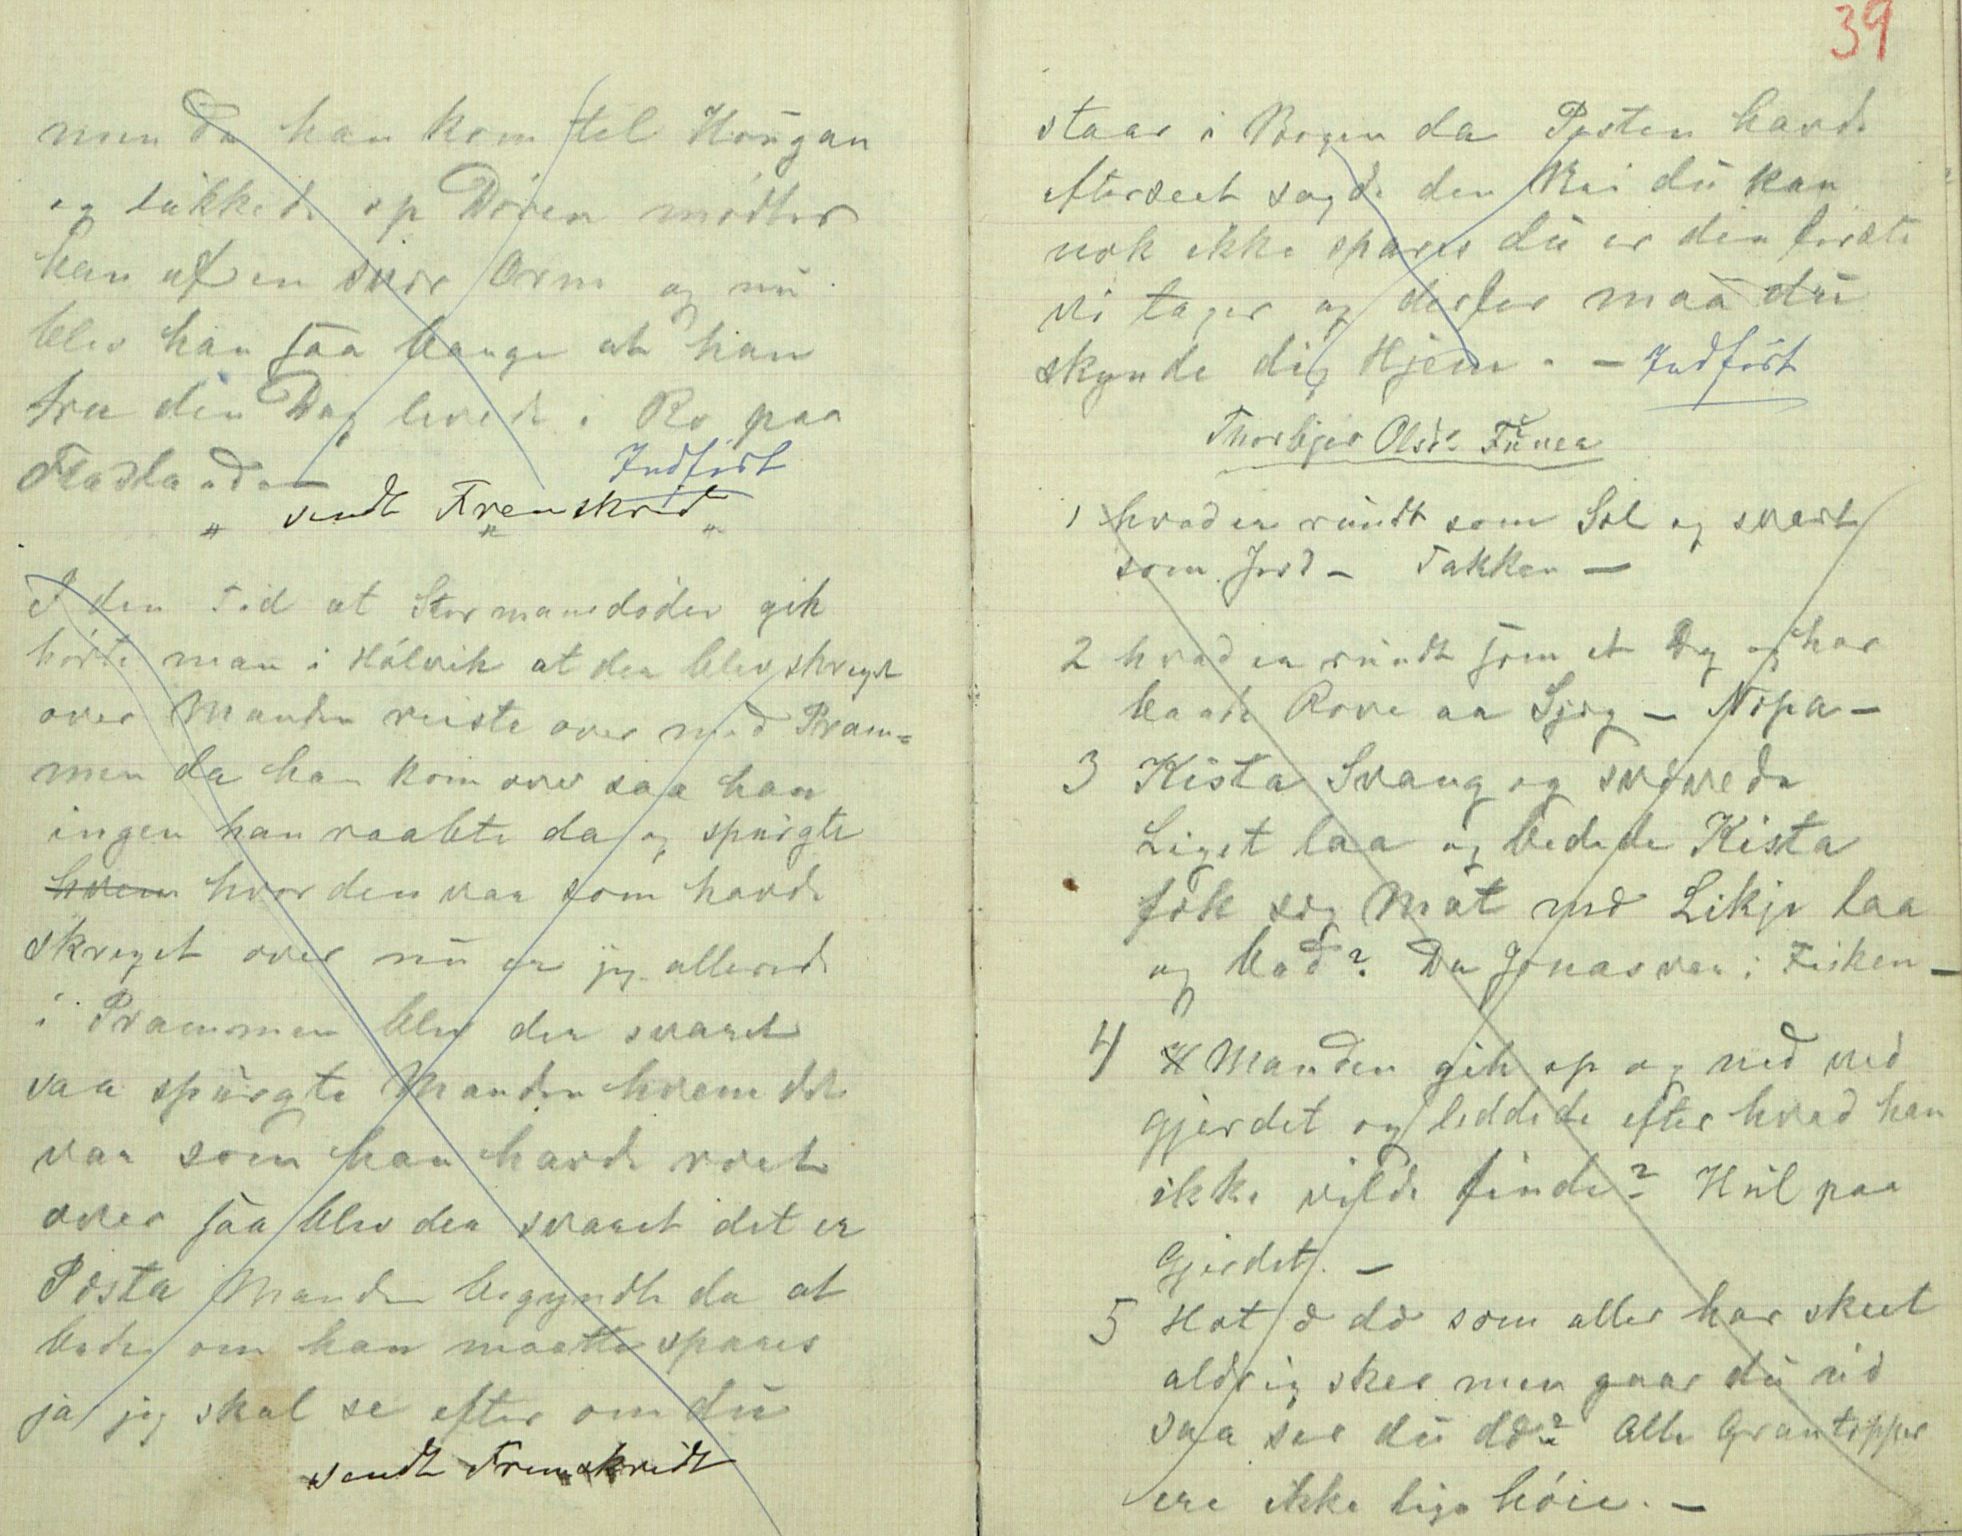 men da han kom til Haugan
og lukkede op Døren mødter
han af en svær Orm og nu
blev han saa bange at han
fra den Dag levede i Ro paa
Fladland
Indført
" sendt Fremskridt "
I den Tid at Stormandøden gik
hørte man i Holvik at der blev skreget
over Manden reiste over med Pram=
men da han kom over saa han
ingen han raabte da og spurgte
hvem hvor den var som havde
skreget over nu er jeg allerede
i Prammen blev der svaret
saa spurgte Manden hvem det
var som han havde roet
over saa blev der svaret det er
Pesta Manden begyndte da at
bede om han maatte spares
ja jeg skal se efter om du
sendt Fremskridt
39
staar i Bogen da Pesten havde
efterseet sagde den Nei du kan
nok ikke spares du er den første
vi tager og derfor maa du
skynde dig Hjem. - Indført
Thorbjør Olsd.
1 hvad er rundt som Sol og svart
som Jord - Takken -
2 hvad er rundt som et Æg og har
baade Rove aa Sjæg - Næpa -
3 Kista Svang og svævede
Liget laa og bedede Kista
fæk sæg Mat mæ Likje laa
og bad? Da Jonas var i Fisken -
4 Manden gik op og ned ved
Gjerdet og leddede efter hvad han
ikke vilde finde? Hul paa
Gjerdet. -
5 Hot æ dæ som aller har skeet
aldrig skes men gaar du ud
saa ser du dæ? Alle Grantopper
ere ikke lige høie. -